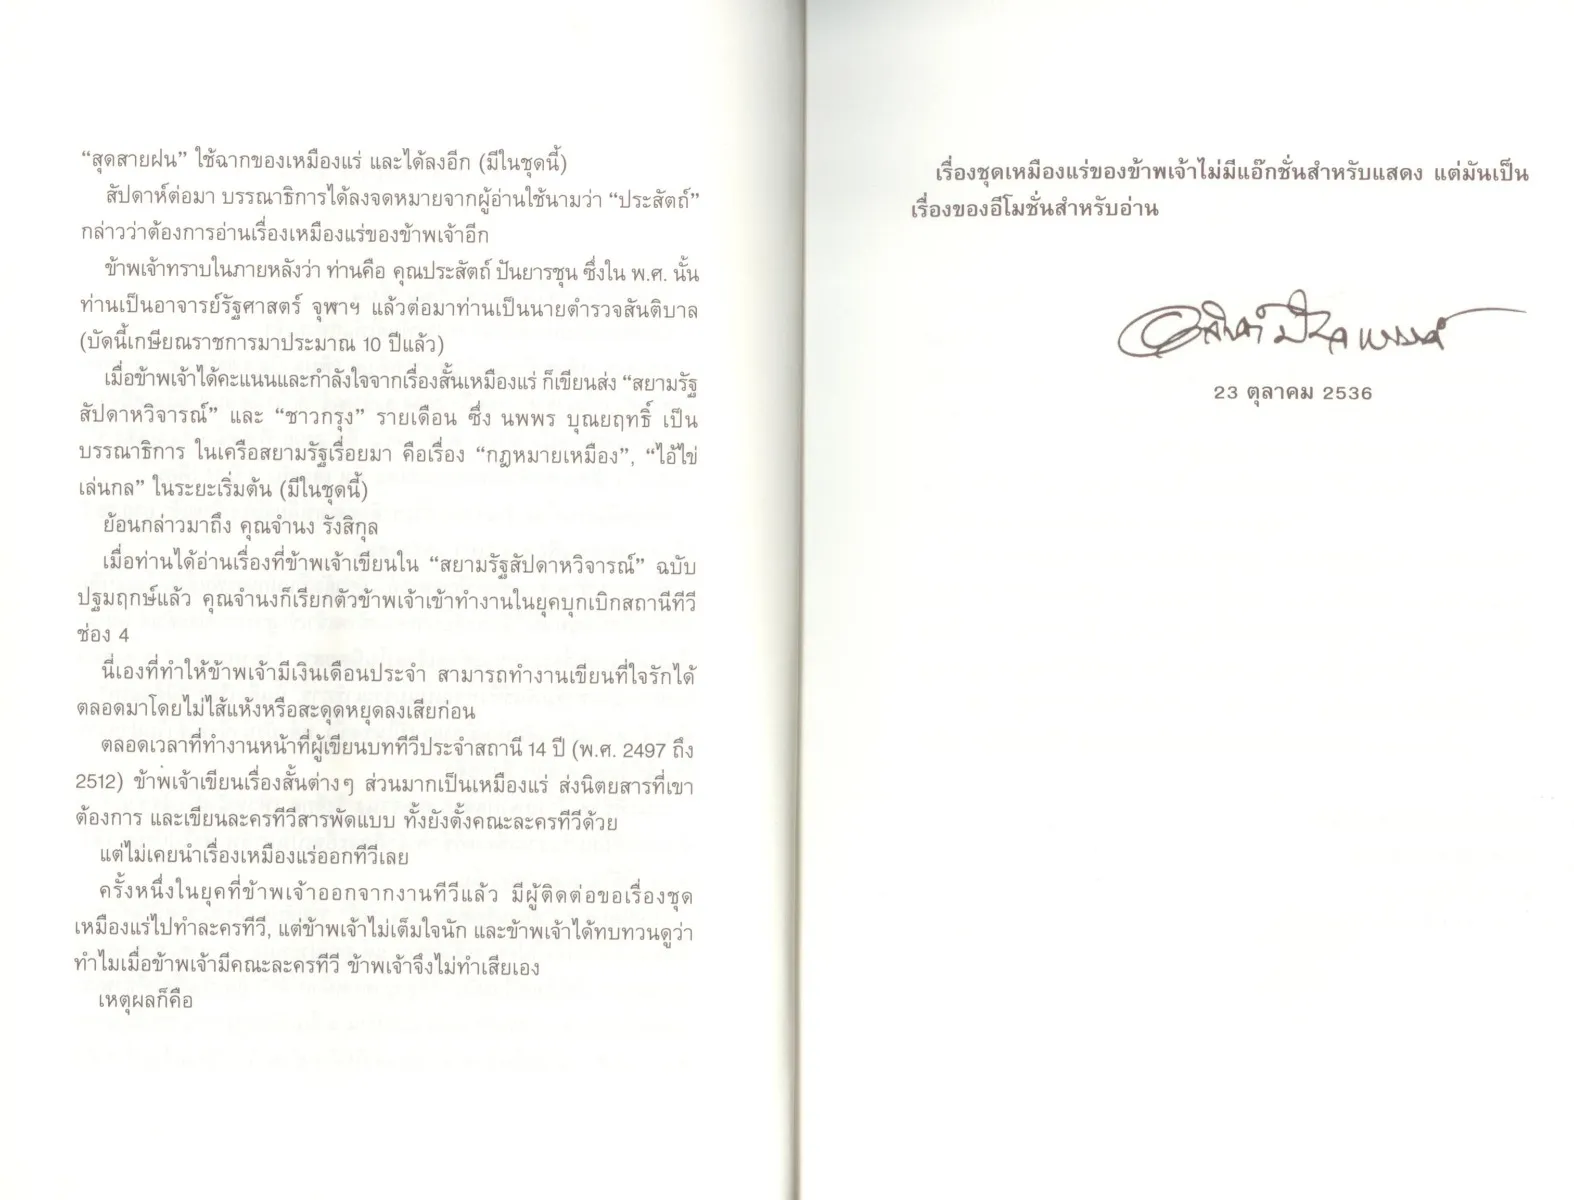 “สุดสายฝน” ใช้ฉากของเหมืองแร่ และได้ลงอีก (มีในชุดนี้)
สัปดาห์ต่อมา บรรณาธิการได้ลงจดหมายจากผู้อ่านใช้นามว่า “ประสัตถ์”
กล่าวว่าต้องการอ่านเรื่องเหมืองแร่ของข้าพเจ้าอีก
ข้าพเจ้าทราบในภายหลังว่า ท่านคือ คุณประสัตถ์ ปันยารชุน ซึ่งใน พ.ศ. นั้น
ท่านเป็นอาจารย์รัฐศาสตร์ จุฬาฯ แล้วต่อมาท่านเป็นนายตำรวจสันติบาล
(บัดนี้เกษียณราชการมาประมาณ 10 ปีแล้ว)
เมื่อข้าพเจ้าได้คะแนนและกำลังใจจากเรื่องสั้นเหมืองแร่ ก็เขียนส่ง “สยามรัฐ
สัปดาหวิจารณ์” และ “ชาวกรุง” รายเดือน ซึ่ง นพพร บุณยฤทธิ์ เป็น
บรรณาธิการ ในเครือสยามรัฐเรื่อยมา คือเรื่อง “กฎหมายเหมือง”, “ไอ้ไข่
เล่นกล” ในระยะเริ่มต้น (มีในชุดนี้)
ย้อนกล่าวมาถึง คุณจำนง รังสิกุล
เมื่อท่านได้อ่านเรื่องที่ข้าพเจ้าเขียนใน “สยามรัฐสัปดาหวิจารณ์” ฉบับ
ปฐมฤกษ์แล้ว คุณจำนงก็เรียกตัวข้าพเจ้าเข้าทำงานในยุคบุกเบิกสถานีทีวี
ช่อง 4
นี่เองที่ทำให้ข้าพเจ้ามีเงินเดือนประจำ สามารถทำงานเขียนที่ใจรักได้
ตลอดมาโดยไม่ไส้แห้งหรือสะดุดหยุดลงเสียก่อน
ตลอดเวลาที่ทำงานหน้าที่ผู้เขียนบททีวีประจำสถานี 14 ปี (พ.ศ. 2497 ถึง
2512) ข้าพเจ้าเขียนเรื่องสั้นต่างๆ ส่วนมากเป็นเหมืองแร่ ส่งนิตยสารที่เขา
ต้องการ และเขียนละครทีวีสารพัดแบบ ทั้งยังตั้งคณะละครทีวีด้วย
แต่ไม่เคยนำเรื่องเหมืองแร่ออกทีวีเลย
ครั้งหนึ่งในยุคที่ข้าพเจ้าออกจากงานทีวีแล้ว มีผู้ติดต่อขอเรื่องชุด
เหมืองแร่ไปทำละครทีวี, แต่ข้าพเจ้าไม่เต็มใจนัก และข้าพเจ้าได้ทบทวนดูว่า
ทำไมเมื่อข้าพเจ้ามีคณะละครทีวี ข้าพเจ้าจึงไม่ทำเสียเอง
เหตุผลก็คือ
เรื่องชุดเหมืองแร่ของข้าพเจ้าไม่มีแอ๊กชั่นสำหรับแสดง แต่มันเป็น
เรื่องของอีโมชั่นสำหรับอ่าน
23 ตุลาคม 2536